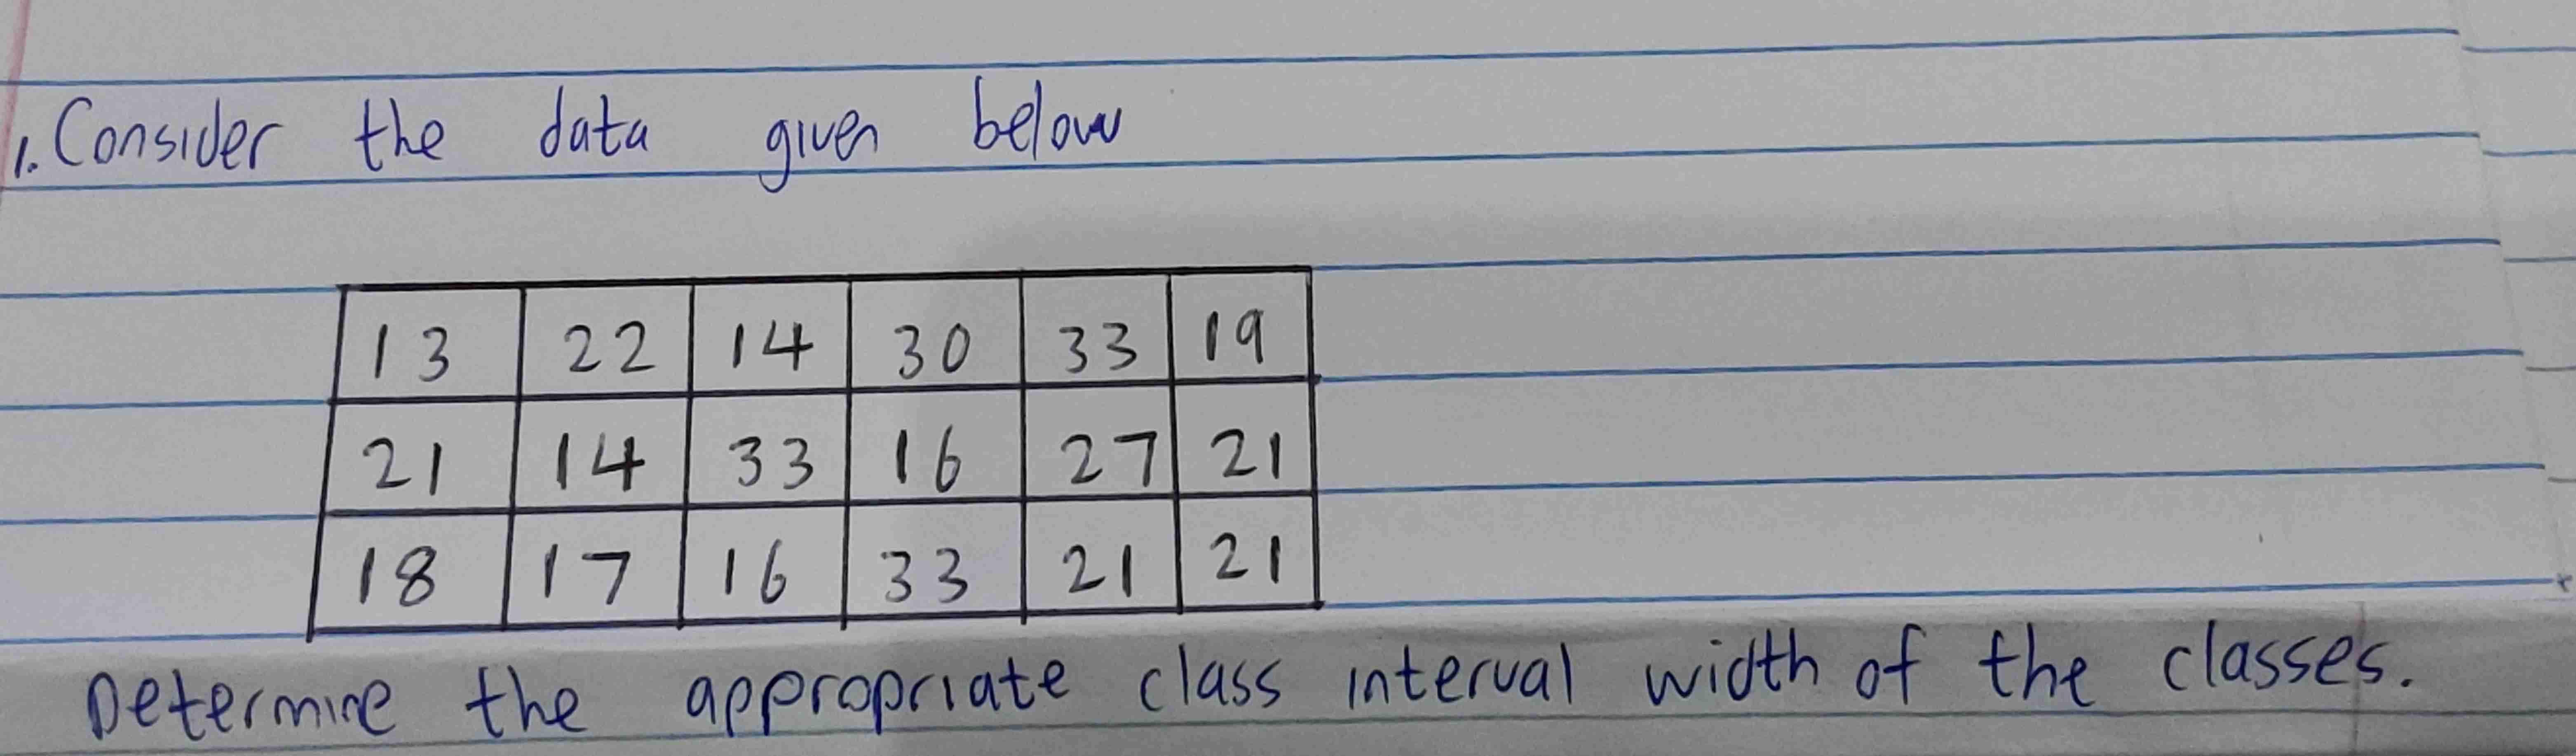 1. Consider the data given below
13 22 14 30 33 19
21 14 33 16 27 21
18 17 16 33 21 21
Determine the appropriate class interval width of the classes.